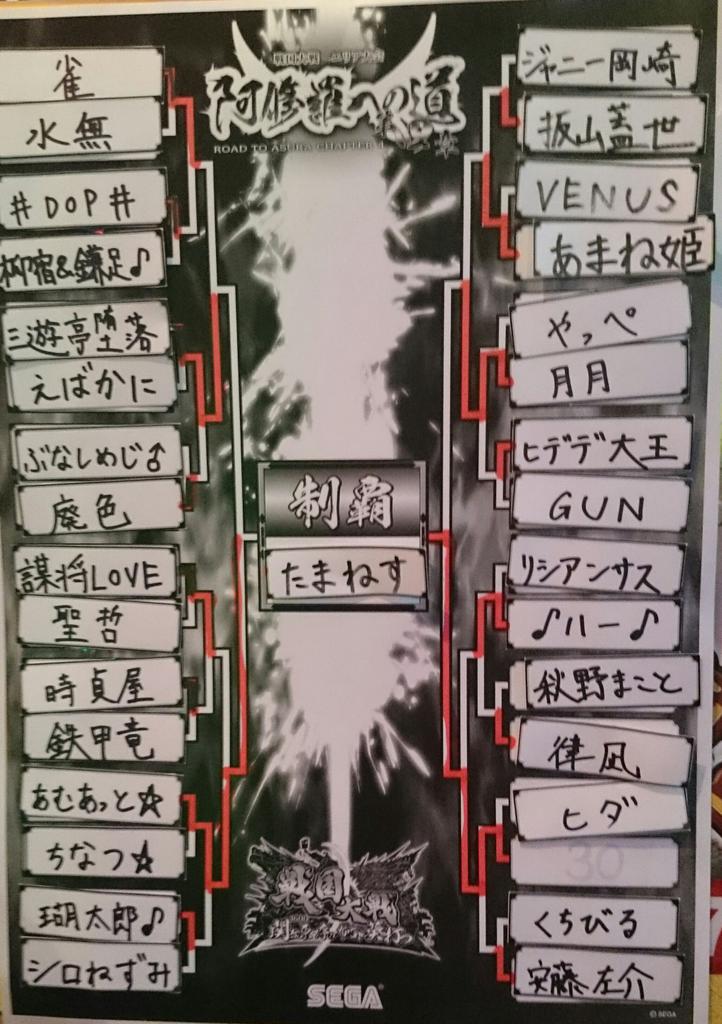 戦国大戦 エリア大会
阿修羅への道
第四章
ROAD TO ASURA CHAPTER 4
雀
水無
#DOP#
柳宿&鎌足♪
三遊亭堕落
えばかに
ぶなしめじ♂
廃色
謀将LOVE
聖哲
時貞屋
鉄甲竜
あむあっと☆
ちなつ☆
瑚太郎♪
シロねずみ
制覇
たまねす
ジャニー岡崎
扳山蓋世
VENUS
あまね姫
やっぺ
月月
ヒデデ大王
GUN
リシアンサス
♪ハー♪
秋野まこと
律凪
ヒダ
30
くちびる
安藤左介
戦国大戦
SEGA
© SEGA